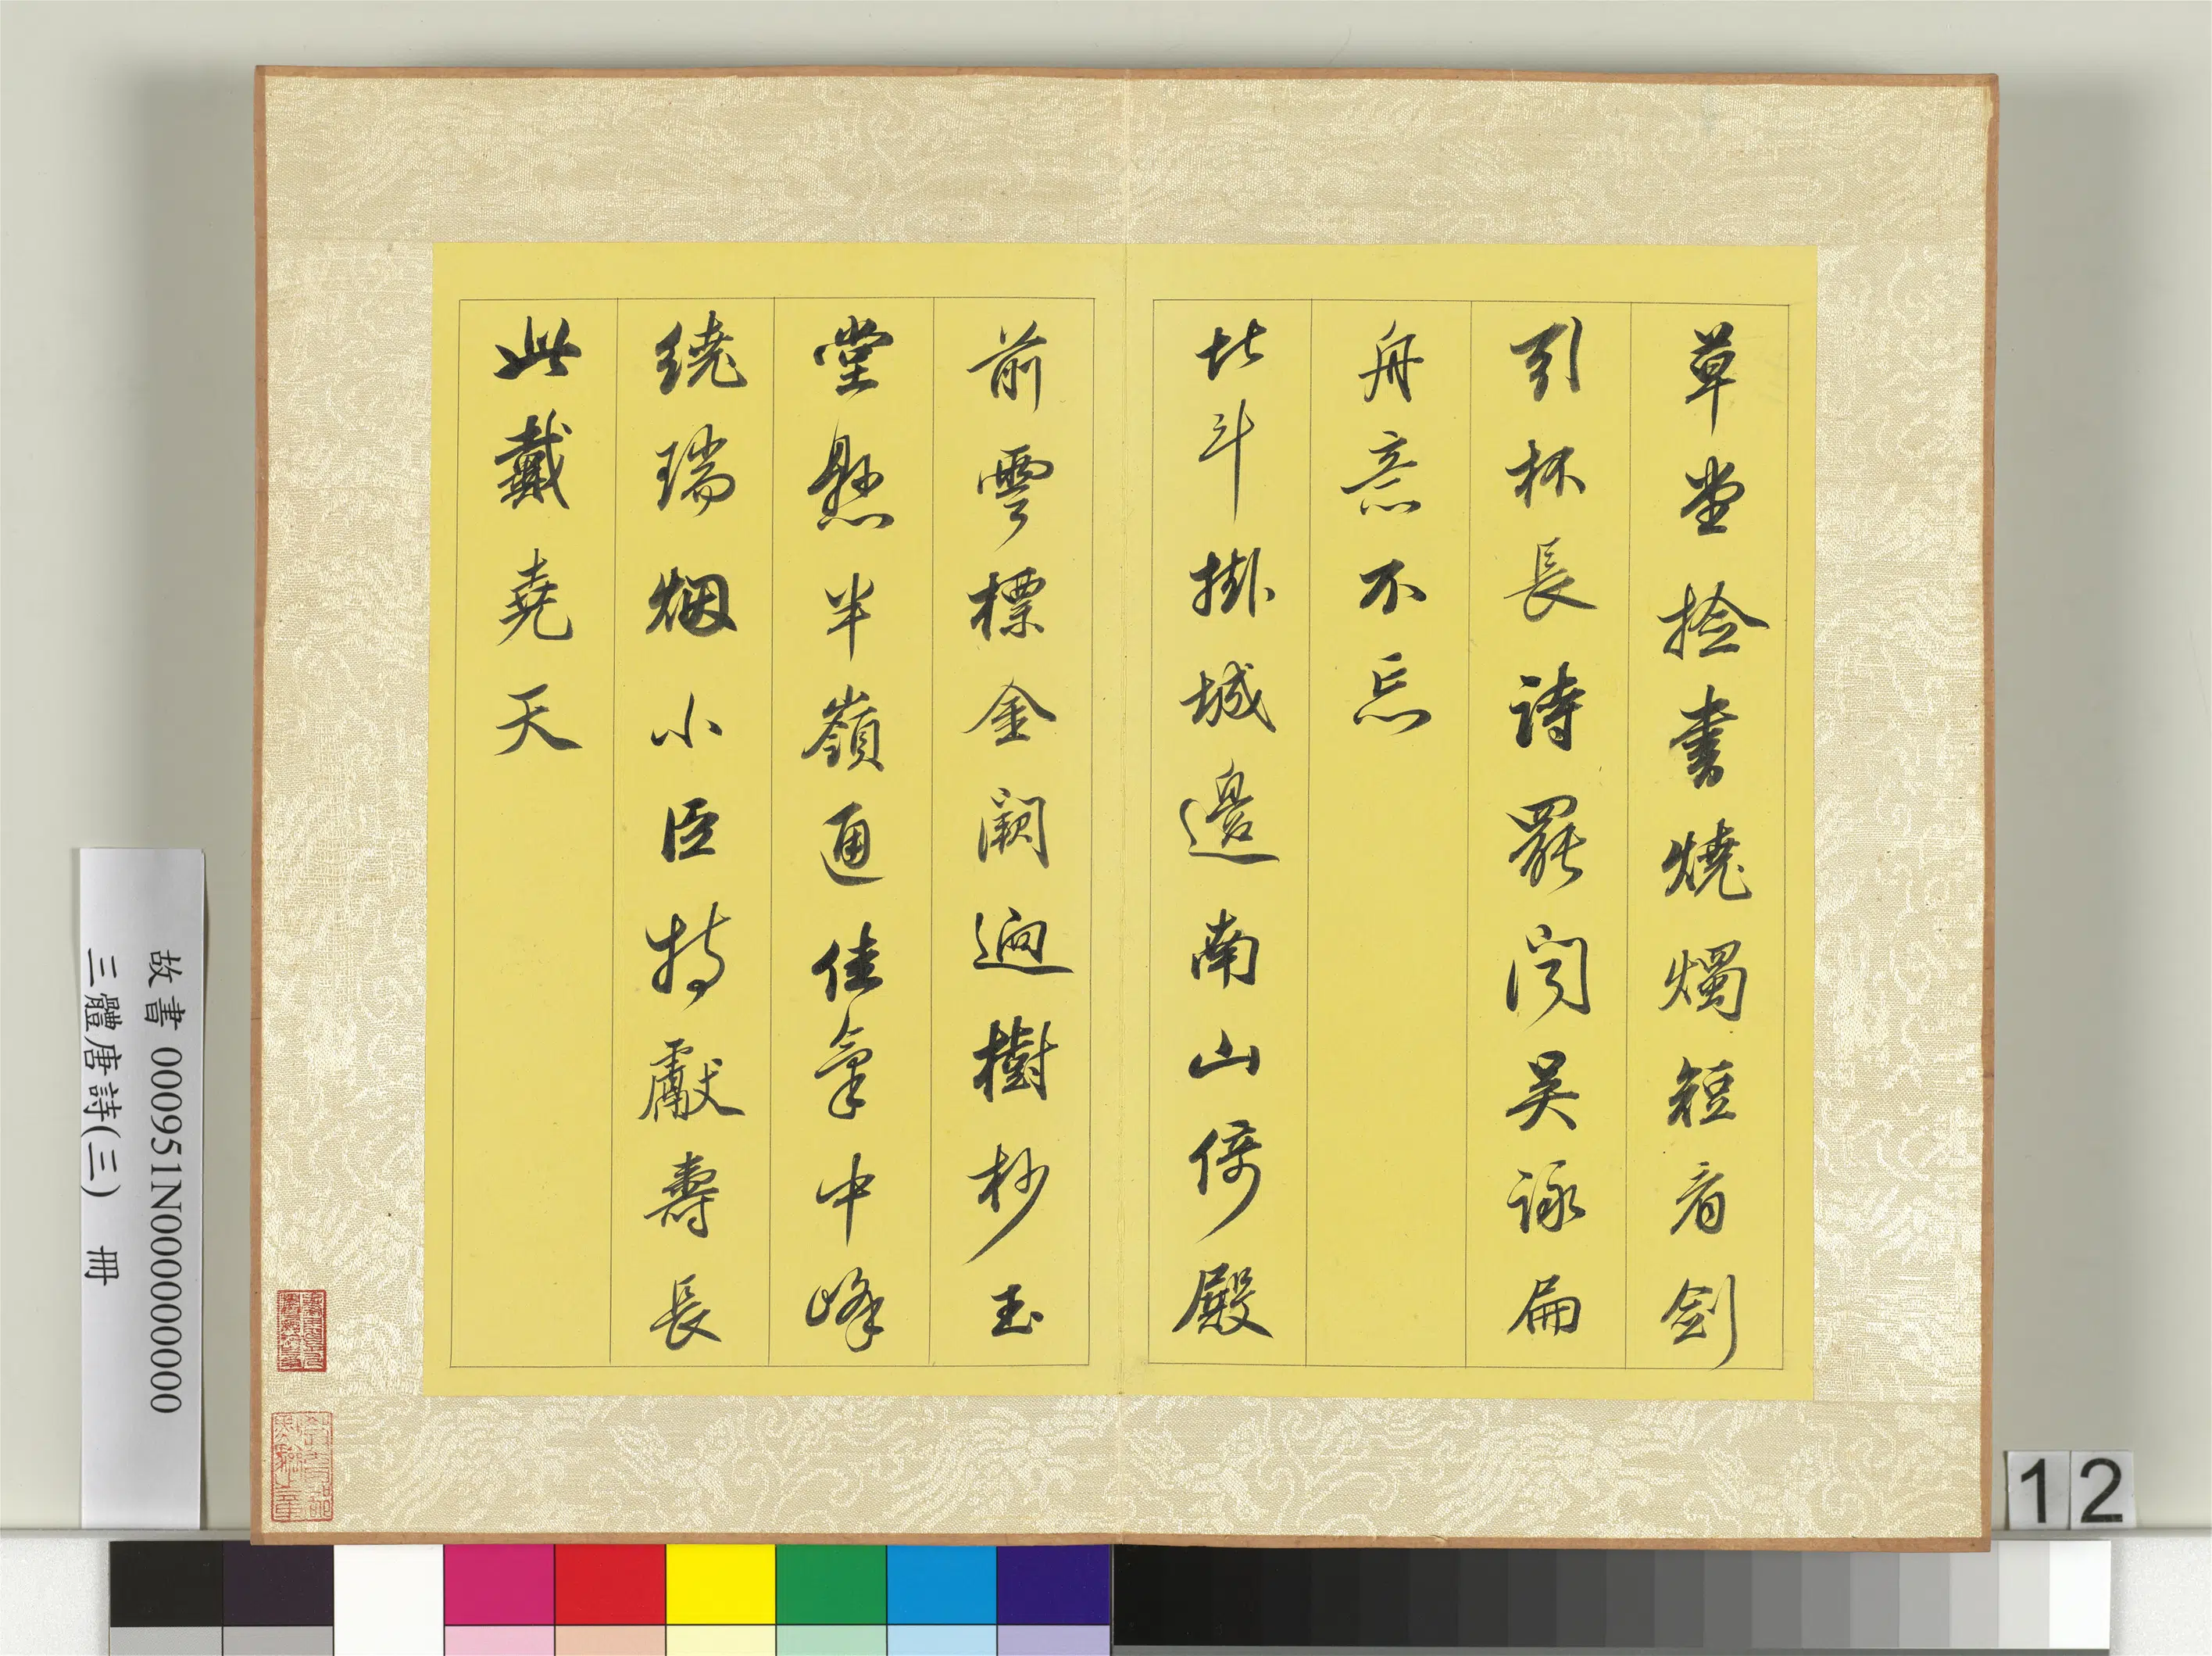 草堂撿書燒燭短看劍
引杯長詩罷聞吳詠扁
舟意不忘
北斗掛城邊南山倚殿
前雲標金闕迥樹杪玉
堂懸半嶺通佳氣中峰
繞瑞烟小臣持獻壽長
此戴堯天
故書 000951N000000000
三體唐詩(三) 冊
12